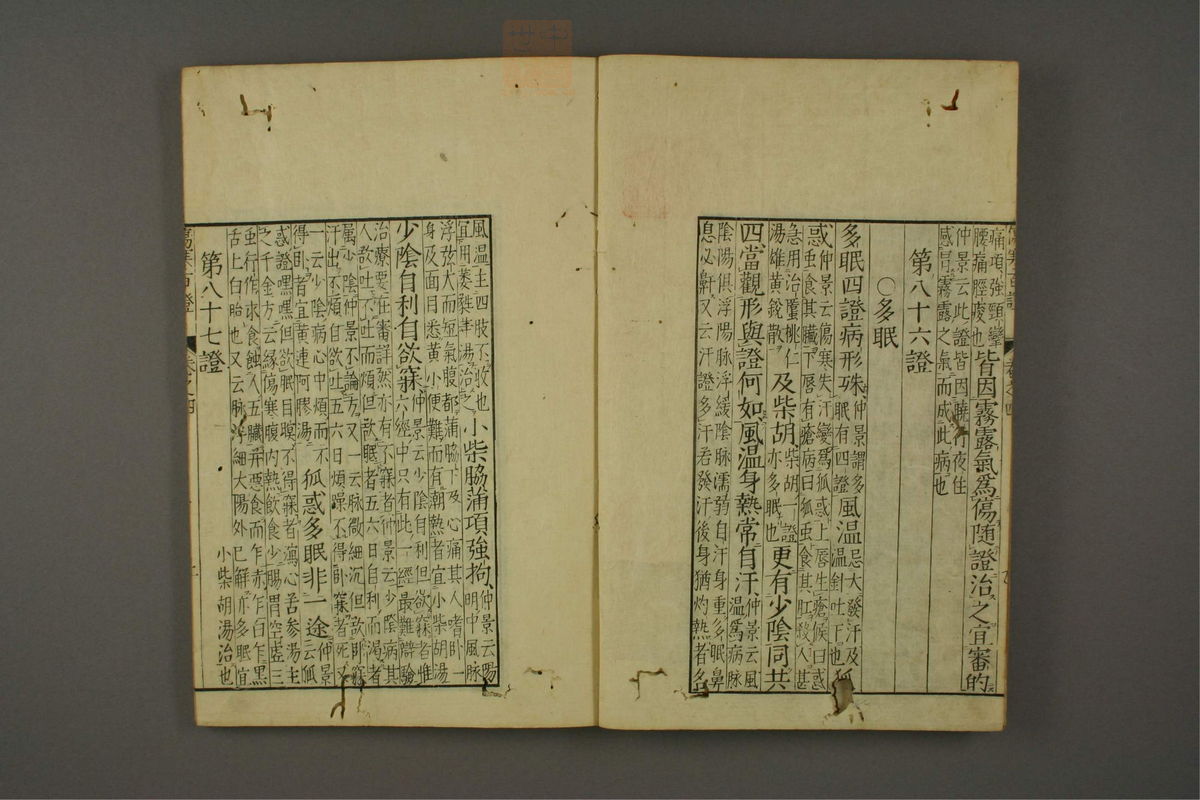 痛項強頸攣
腰痛脛痠也皆因霧露氣爲傷隨證治之宜審的
仲景云此證皆因曉行夜住
感冒霧露之氣而成此病也
第八十六證
○多眠
多眠四證病形殊仲景謂多
眠有四證風温忌大發汗及
温針吐下也狐
惑仲景云傷寒失汗變爲狐惑上唇生瘡候曰惑
虫食其臟下唇有瘡病曰狐虫食其肛殺人甚
急用治䘌桃仁
湯雄黄鋭散及柴胡柴胡一證
亦多眠也更有少陰同共
四當觀形與證何如風温身熱常自汗仲景云風
温爲病脉
陰陽俱浮陽脉浮緩陰脉濡弱自汗身重多眠鼻
息必鼾又云汗證多汗若發汗後身猶灼熱者名
風温主四肢不收也
宜用萎蕤湯治之小柴脇滿項強拘仲景云陽
明中風脉
浮弦大而短氣腹都滿脇下及心痛其人嗜卧一
身及面目悉黄小便難而有潮熱者宜小柴胡湯
少陰自利自欲寐仲景云少陰自利但欲寐者惟
六經中只有此一經最難辯驗
治療要在審詳然亦有不寐者仲景云少陰病其
人欲吐不吐而煩但欲眠者五六日自利而渴者
屬少陰仲景不論方又一云脉微細沉但欲卧寐
汗出不煩自欲吐五六日煩躁不得卧寐者死又
一云少陰病心中煩而不
得卧者宜黄連阿膠湯狐惑多眠非一途仲景
云狐
惑證嘿嘿但欲眠目瞑不得寐者瀉心苦参湯主
之千金方云緣傷寒腹内熱飲食少腸胃空虚三
虫行作求食蝕人五臟并惡食而乍赤乍白乍黑
舌上白胎也又云脉浮細太陽外已解亦多眠宜
小柴胡湯治也
第八十七證